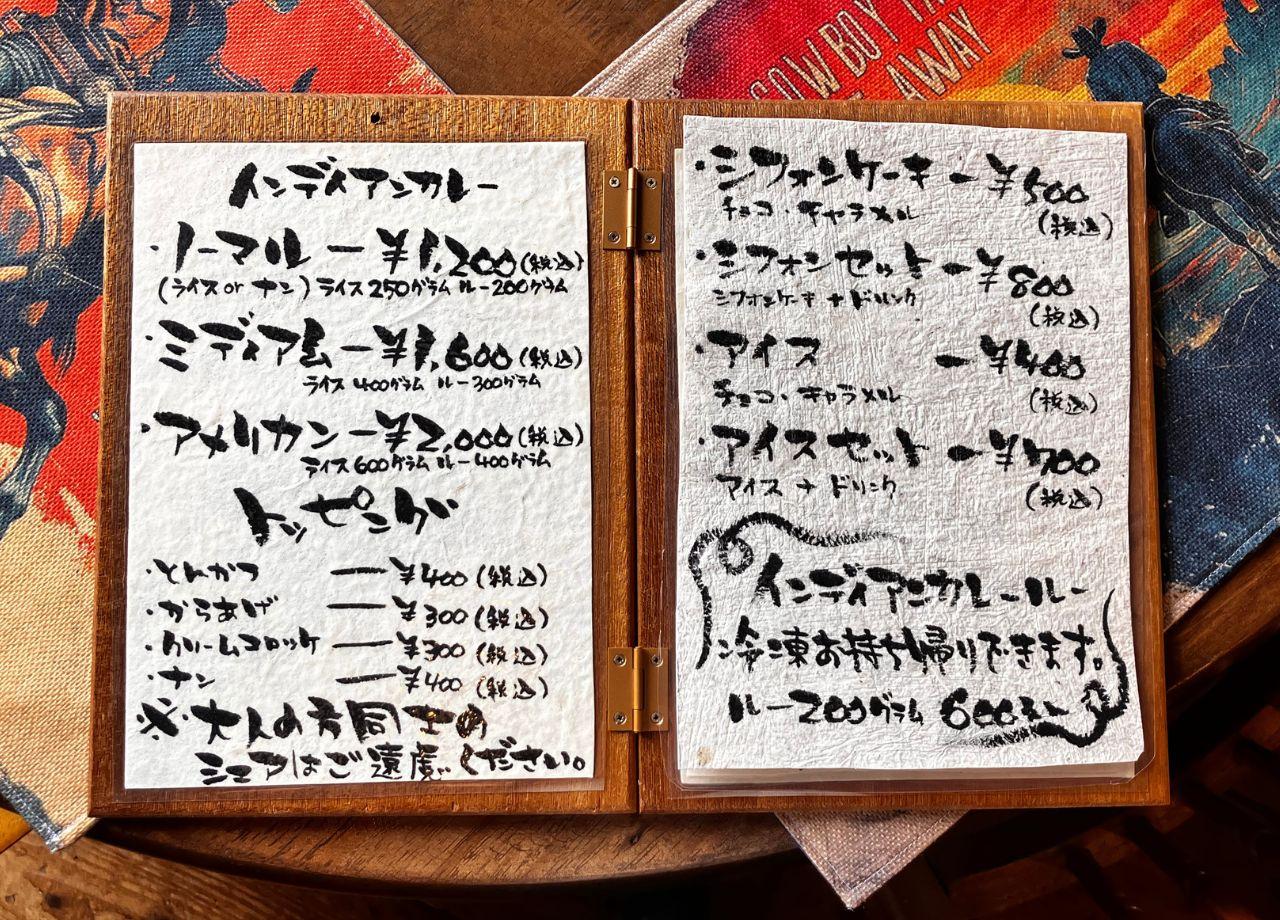 COWBOY TA
AWAY
インディアンカレー
・ノーマル ー ¥1,200(税込)
(ライス or ナン) ライス250グラム ルー200グラム
・ミディアム ー ¥1,600(税込)
ライス400グラム ルー300グラム
・アメリカン ー ¥2,000(税込)
ライス600グラム ルー400グラム
トッピング
・とんかつ ー ¥400(税込)
・からあげ ー ¥300(税込)
・クリームコロッケ ー ¥300(税込)
・ナン ー ¥400(税込)
※大人の方同士の
シェアはご遠慮ください。
・シフォンケーキ ー ¥500
チョコ・キャラメル (税込)
・シフォンセット ー ¥800
シフォンケーキ + ドリンク (税込)
・アイス ー ¥400
チョコ・キャラメル (税込)
・アイスセット ー ¥700
アイス + ドリンク (税込)
インディアンカレールー
冷凍お持ち帰りできます。
ルー200グラム 600えん